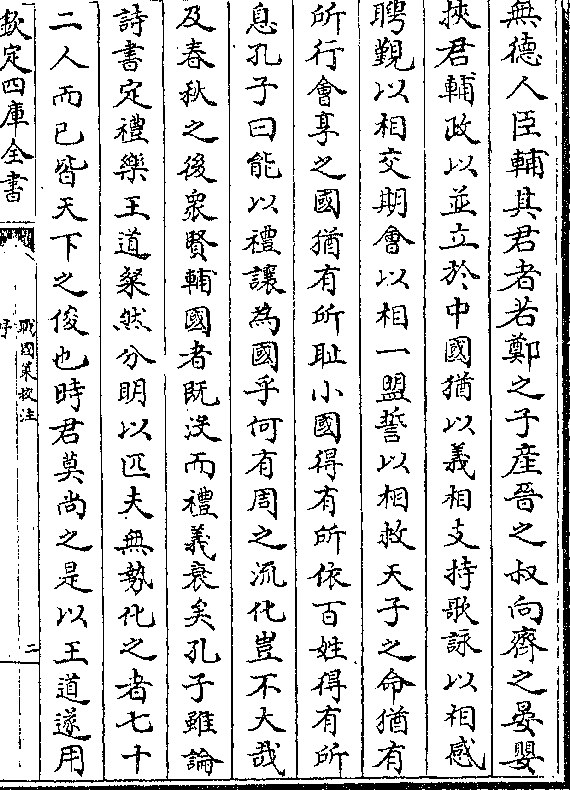 無德人臣輔其君者若鄭之子産晉之叔向齊之晏嬰
挾君輔政以並立於中國猶以義相支持歌詠以相感
聘覲以相交期會以相一盟誓以相救天子之命猶有
所行會享之國猶有所耻小國得有所依百姓得有所
息孔子曰能以禮讓為國乎何有周之流化豈不大哉
及春秋之後衆賢輔國者既没而禮義衰矣孔子雖論
詩書定禮樂王道粲然分明以匹夫無勢化之者七十
二人而已皆天下之俊也時君莫尚之是以王道遂用
欽定四庫全書
戰國策校注
序
二